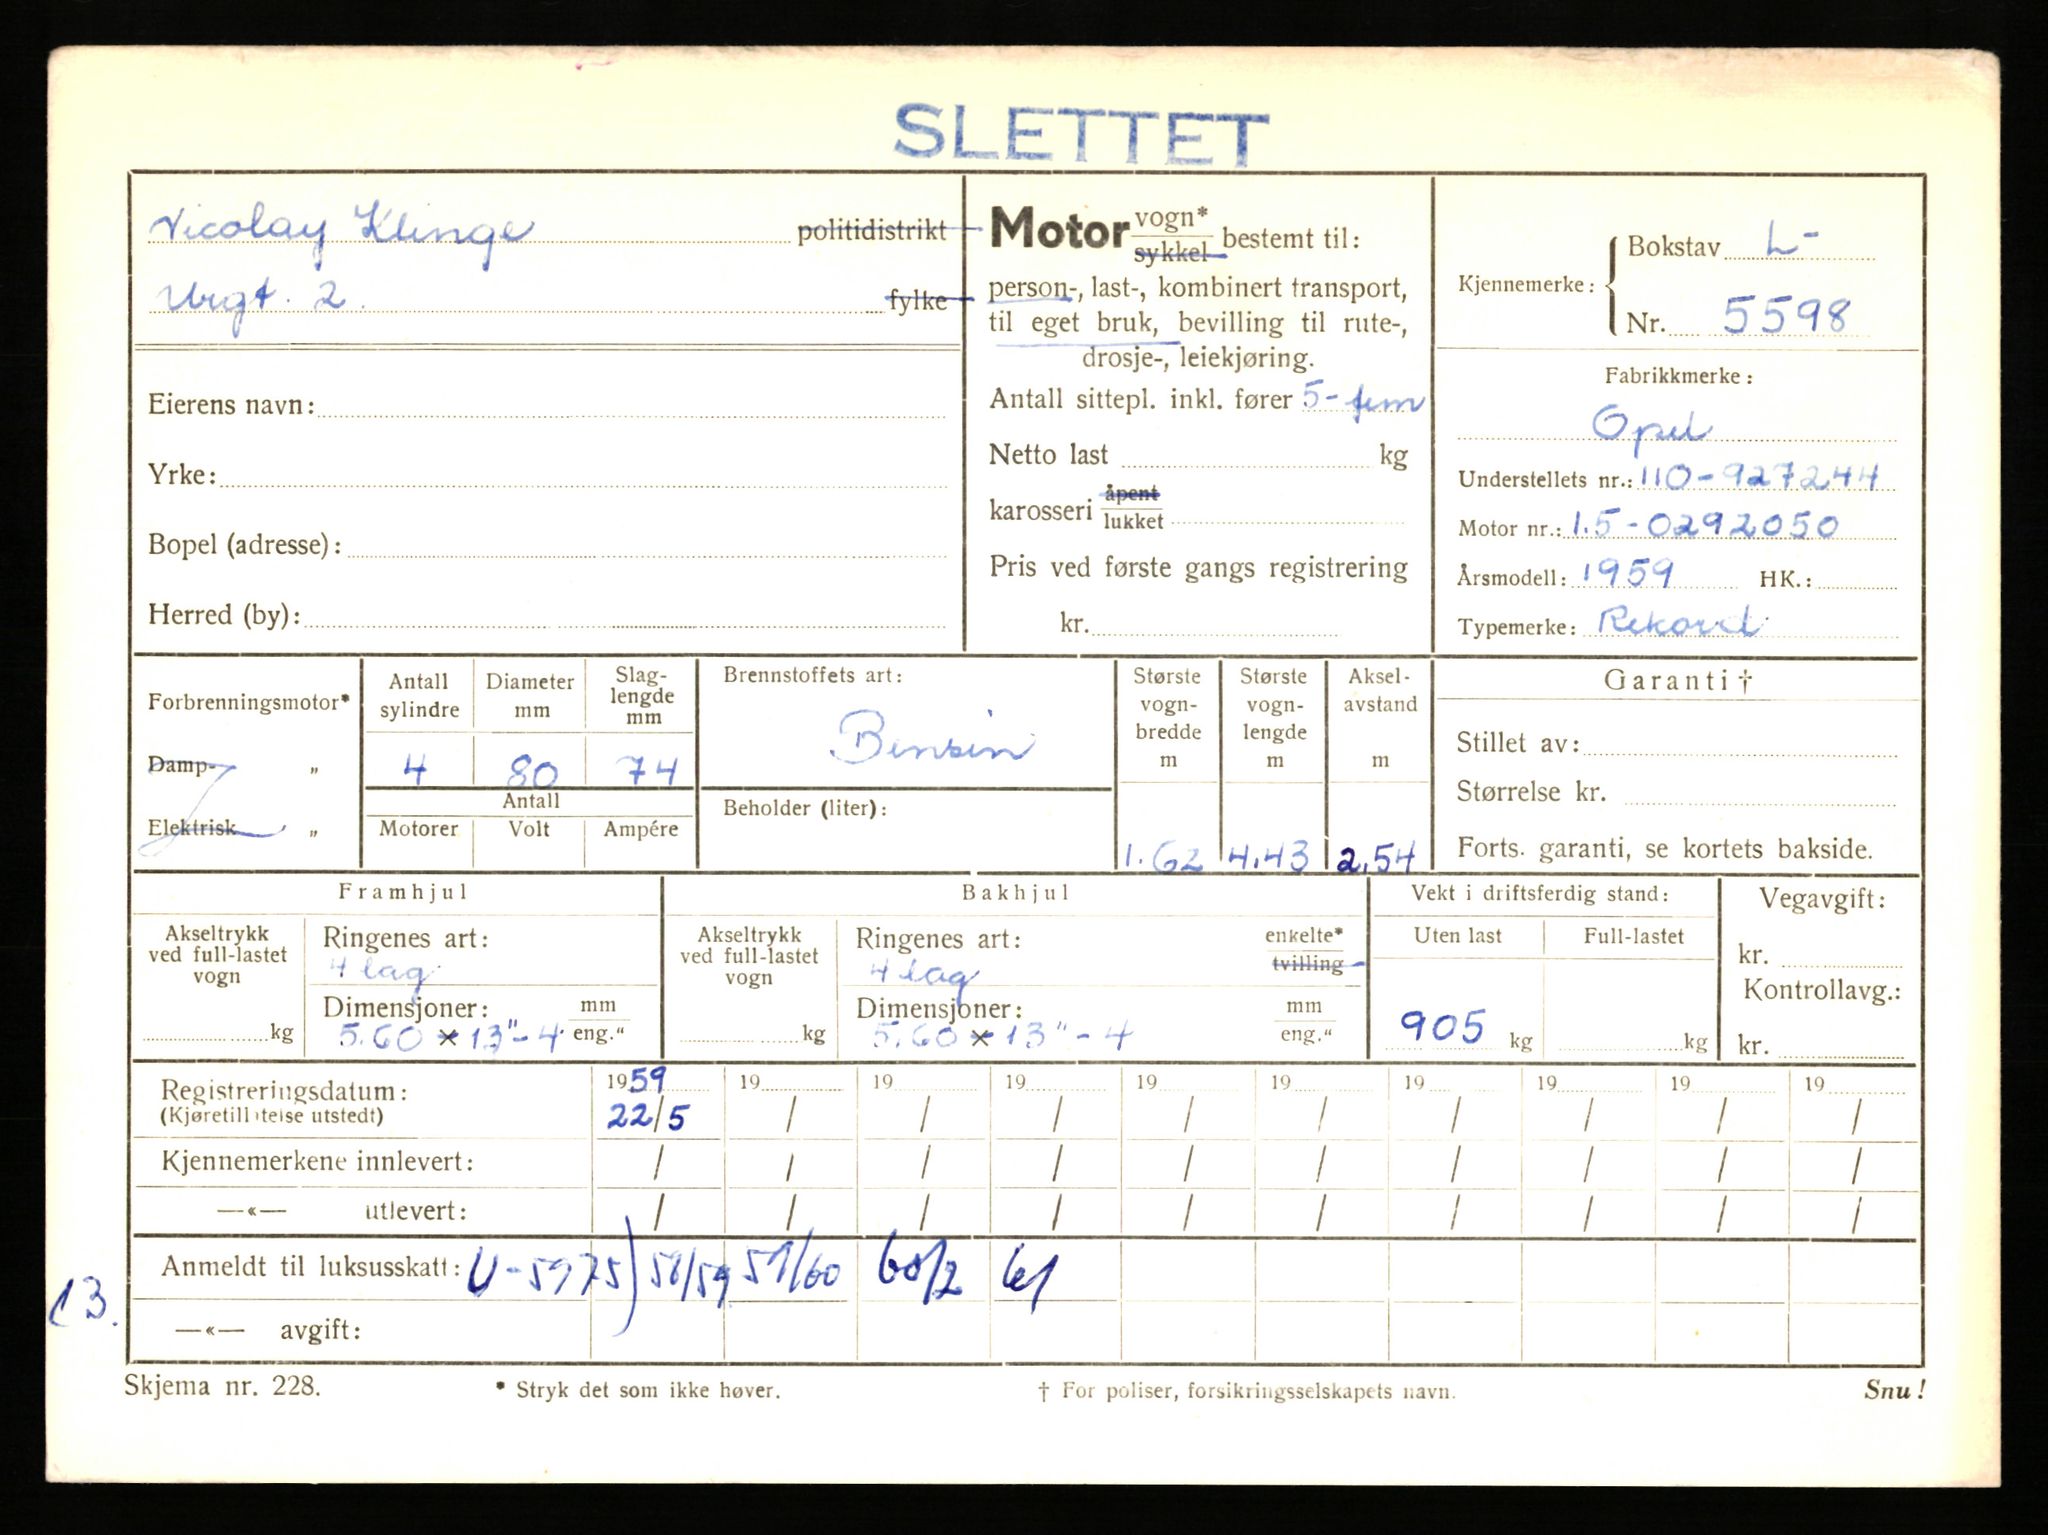 SLETTET
Nicolay Klinge politidistrikt
2. fylke
Eierens navn:
Yrke:
Bopel (adresse):
Herred (by):
Motor vogn* sykkel bestemt til:
person-, last-, kombinert transport,
til eget bruk, bevilling til rute-,
drosje-, leiekjøring.
Antall sittepl. inkl. fører 5 - fem
Netto last kg
karosseri åpent lukket
Pris ved første gangs registrering
kr.
Kjennemerke: Bokstav L-
Nr. 5598
Fabrikkmerke:
Opel
Understellets nr.: 110-927244
Motor nr.: 1.5-0292050
Årsmodell: 1959 HK.:
Typemerke: Rekord
Forbrenningsmotor*
Damp- „
Elektrisk „
Antall sylindre
Diameter mm
Slag-lengde mm
4 80 74
Antall
Motorer Volt Ampére
Brennstoffets art:
Bensin
Beholder (liter):
Største vogn-bredde m
Største vogn-lengde m
Aksel-avstand m
1.62 4.43 2.54
Garanti †
Stillet av:
Størrelse kr.
Forts. garanti, se kortets bakside.
Framhjul
Akseltrykk ved full-lastet vogn
kg
Ringenes art:
4 lag
Dimensjoner: mm
5.60 x 13" - 4 eng."
Bakhjul
Akseltrykk ved full-lastet vogn
kg
Ringenes art: enkelte*
4 lag tvilling
Dimensjoner: mm
5.60 x 13" - 4 eng."
Vekt i driftsferdig stand:
Uten last Full-lastet
905 kg kg
Vegavgift:
kr.
Kontrollavg.:
kr.
Registreringsdatum: 1959 19 19 19 19 19 19 19 19 19
(Kjøretillatelse utstedt) 22/5 / / / / / / / / /
Kjennemerkene innlevert: / / / / / / / / / /
—«— utlevert: / / / / / / / / / /
Anmeldt til luksusskatt: U-5975) 58/59 59/60 60/2 61
13.
—«— avgift:
Skjema nr. 228. * Stryk det som ikke høver. † For poliser, forsikringsselskapets navn. Snu!